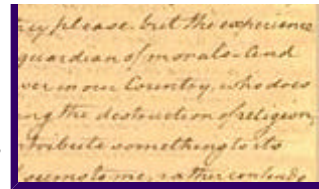 they please. but the experience
guardian of morals. And
ver in our Country, who does
ing the destruction of religion,
ntribute something to its
seems to me, rather